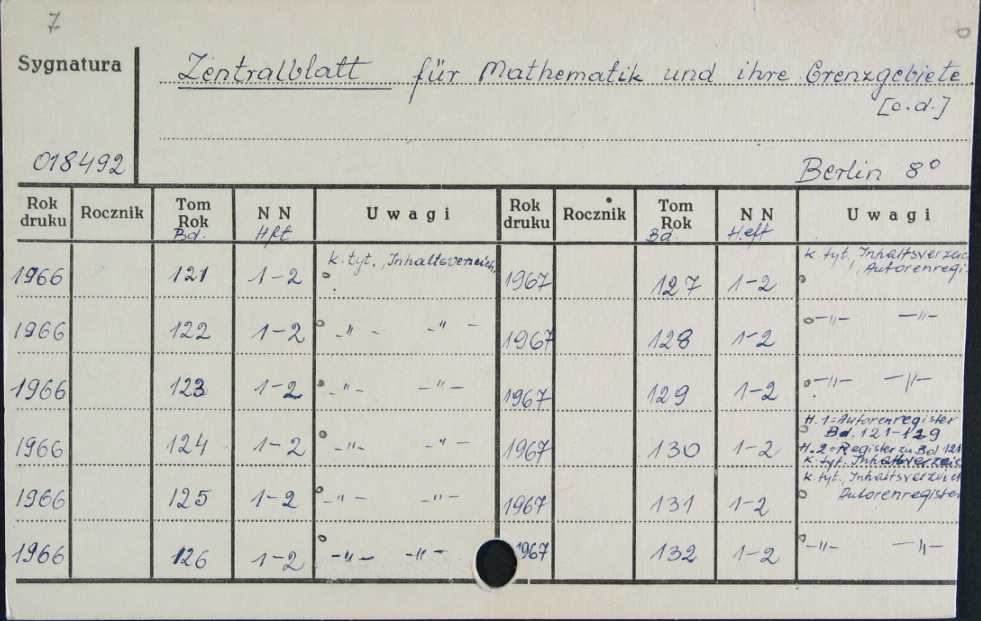 7
Sygnatura
Zentralblatt für Mathematik und ihre Grenzgebiete
[c.d.]
018492
Berlin 8°
Rok druku Rocznik Tom Rok Bd. N N Hft Uwagi Rok druku Rocznik Tom Rok Bd. N N Heft Uwagi
1966 121 1-2 k. tyt., Inhaltsverzeich. 1967 127 1-2 k. tyt., Inhaltsverzeic Autorenregi.
1966 122 1-2 -"- -"- 1967 128 1-2 -"- -"-
1966 123 1-2 -"- -"- 1967 129 1-2 -"- -"-
1966 124 1-2 -"- -"- 1967 130 1-2 H. 1=Autorenregister Bd. 121-129 H. 2=Register zu Bd 121 k. tyt. Inhaltsverzeic
1966 125 1-2 -"- -"- 1967 131 1-2 k. tyt., Inhaltsverzeich Autorenregister
1966 126 1-2 -"- -"- 1967 132 1-2 -"- -"-